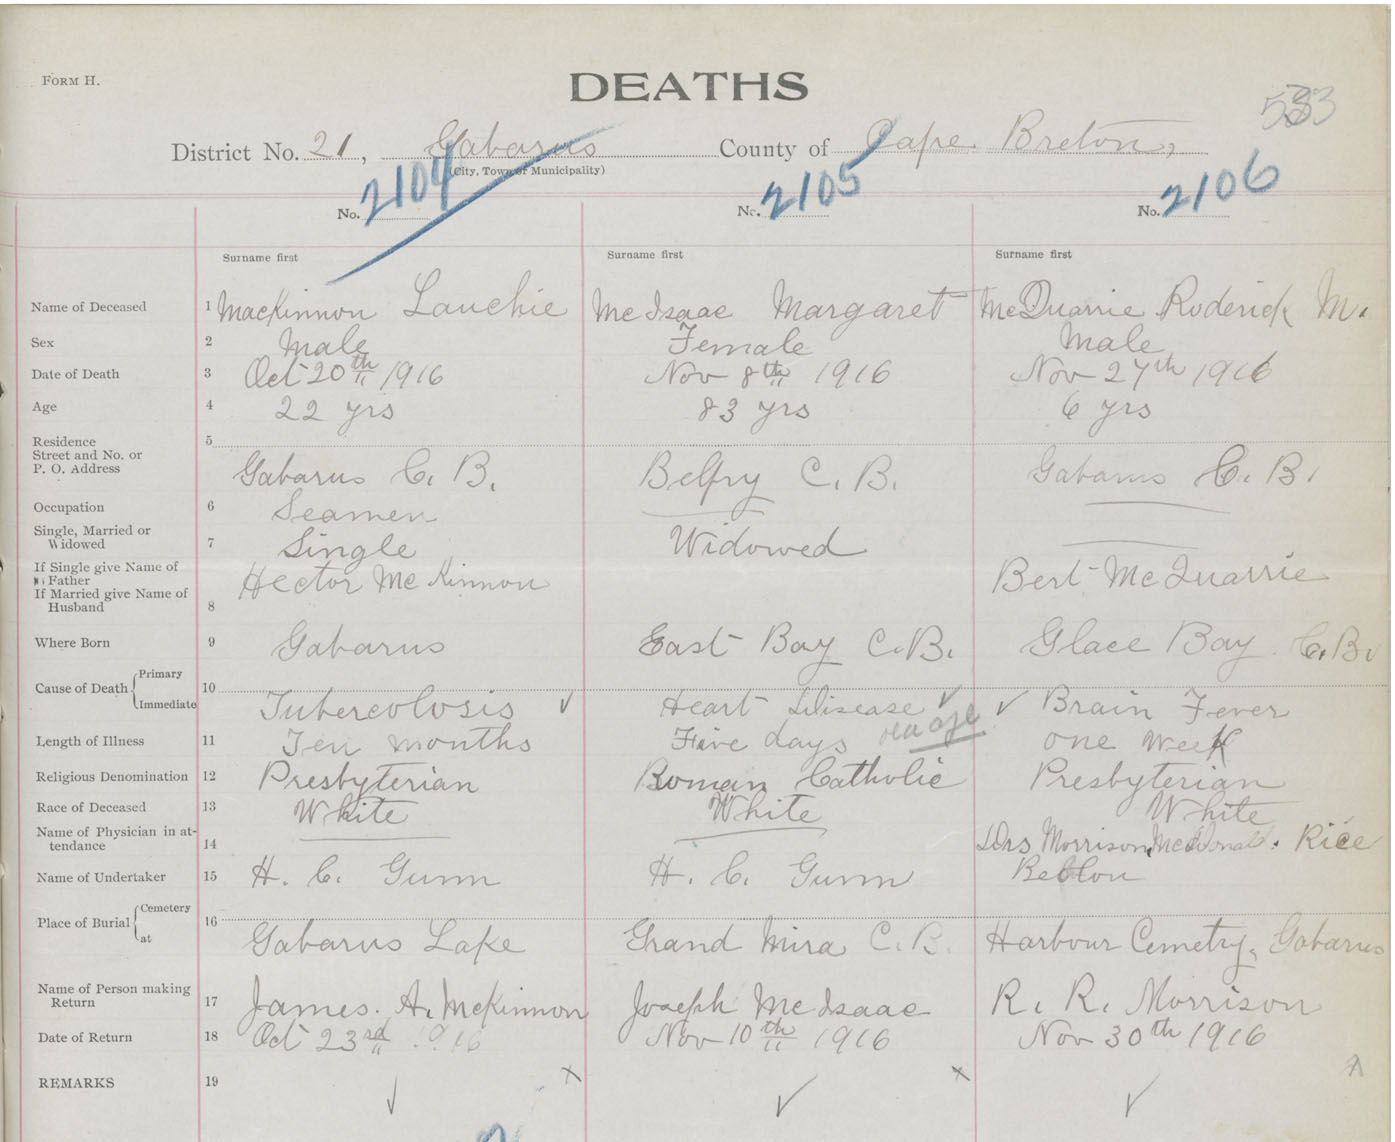 FORM H.
DEATHS
533
District No. 21, Gabarus County of Cape Breton,
(City, Town or Municipality)
No. 2104 No. 2105 No. 2106
Surname first Surname first Surname first
Name of Deceased 1 MacKinnon Lauchie McIsaac Margaret McQuarrie Roderick M.
Sex 2 Male Female Male
Date of Death 3 Oct 20th 1916 Nov 8th 1916 Nov 27th 1916
Age 4 22 yrs 83 yrs 6 yrs
Residence 5
Street and No. or
P. O. Address Gabarus C. B. Belfry C. B. Gabarus C. B.
Occupation 6 Seamen
Single, Married or
Widowed 7 Single Widowed
If Single give Name of
Father Hector McKinnon Bert McQuarrie
If Married give Name of
Husband 8
Where Born 9 Gabarus East Bay C.B. Glace Bay C.B.
Cause of Death Primary
Immediate 10 Tubercolosis ✓ Heart Disease ✓ ✓ Brain Fever
Length of Illness 11 Ten months Five days old age one week
Religious Denomination 12 Presbyterian Roman Catholic Presbyterian
Race of Deceased 13 White White White
Name of Physician in at-
tendance 14 Drs Morrison, McDonald. Rice
Name of Undertaker 15 H. C. Gunn H. C. Gunn Beaton
Place of Burial Cemetery
at 16 Gabarus Lake Grand Mira C. B. Harbour Cemetry, Gabarus
Name of Person making
Return 17 James. A. McKinnon Joseph McIsaac R. R. Morrison
Date of Return 18 Oct 23rd 1916 Nov 10th 1916 Nov 30th 1916
REMARKS 19 ✓ x ✓ x ✓ x